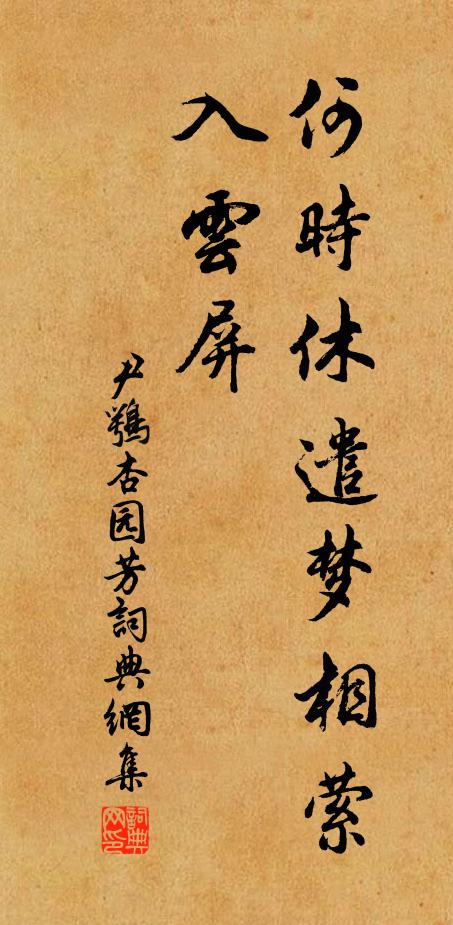 何時休遣梦相萦
入雲屏
尹鶚杏园芳詞典網集
詞典网印